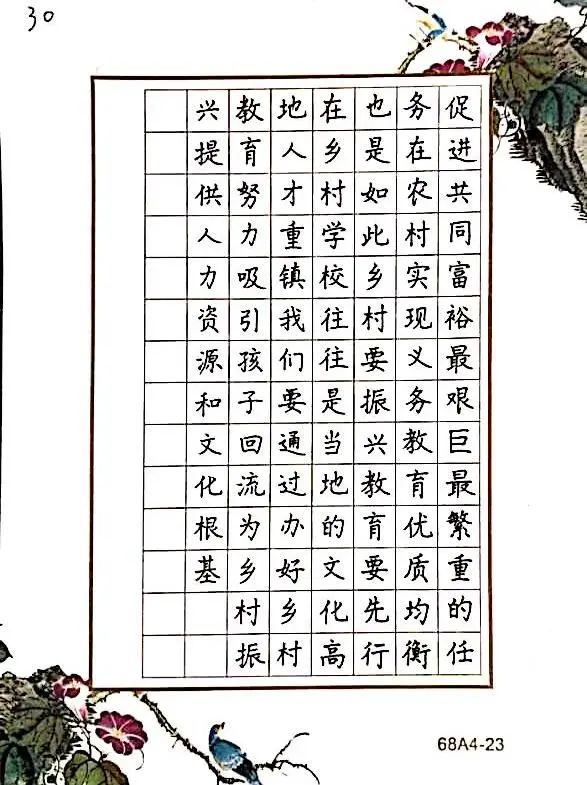 30
促进共同富裕最艰巨最繁重的任
务在农村实现义务教育优质均衡
也是如此乡村要振兴教育要先行
在乡村学校往往是当地的文化高
地人才重镇我们要通过办好乡村
教育努力吸引孩子回流为乡村振
兴提供人力资源和文化根基
68A4-23